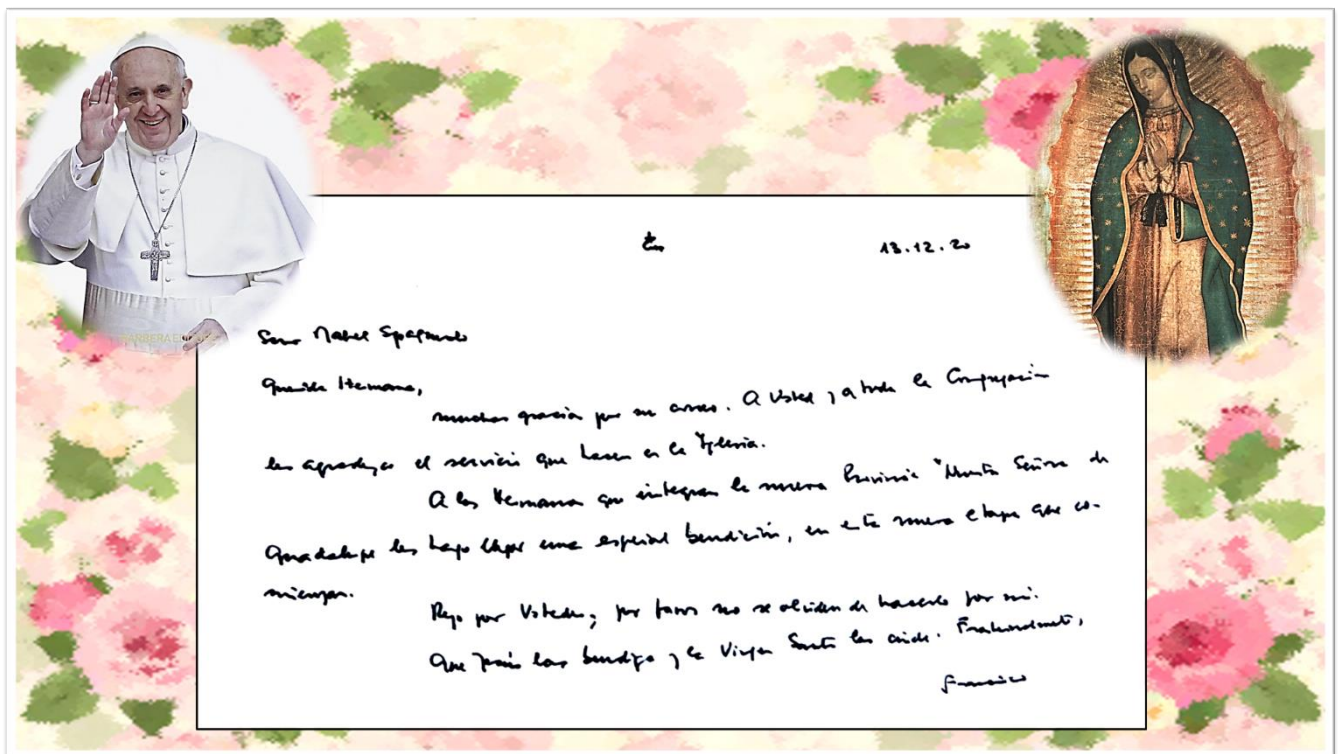 13.12.20
Sor Mabel Spagnuolo
Querida Hermana,
muchas gracias por su correo. A Usted y a toda la Congregación
les agradezco el servicio que hacen en la Iglesia.
A las Hermanas que integran la nueva Provincia "Nuestra Señora de
Guadalupe les hago llegar una especial bendición, en esta nueva etapa que co-
mienzan.
Rezo por Ustedes; por favor no se olviden de hacerlo por mí.
Que Jesús las bendiga y la Virgen Santa las cuide. Fraternalmente,
Francisco